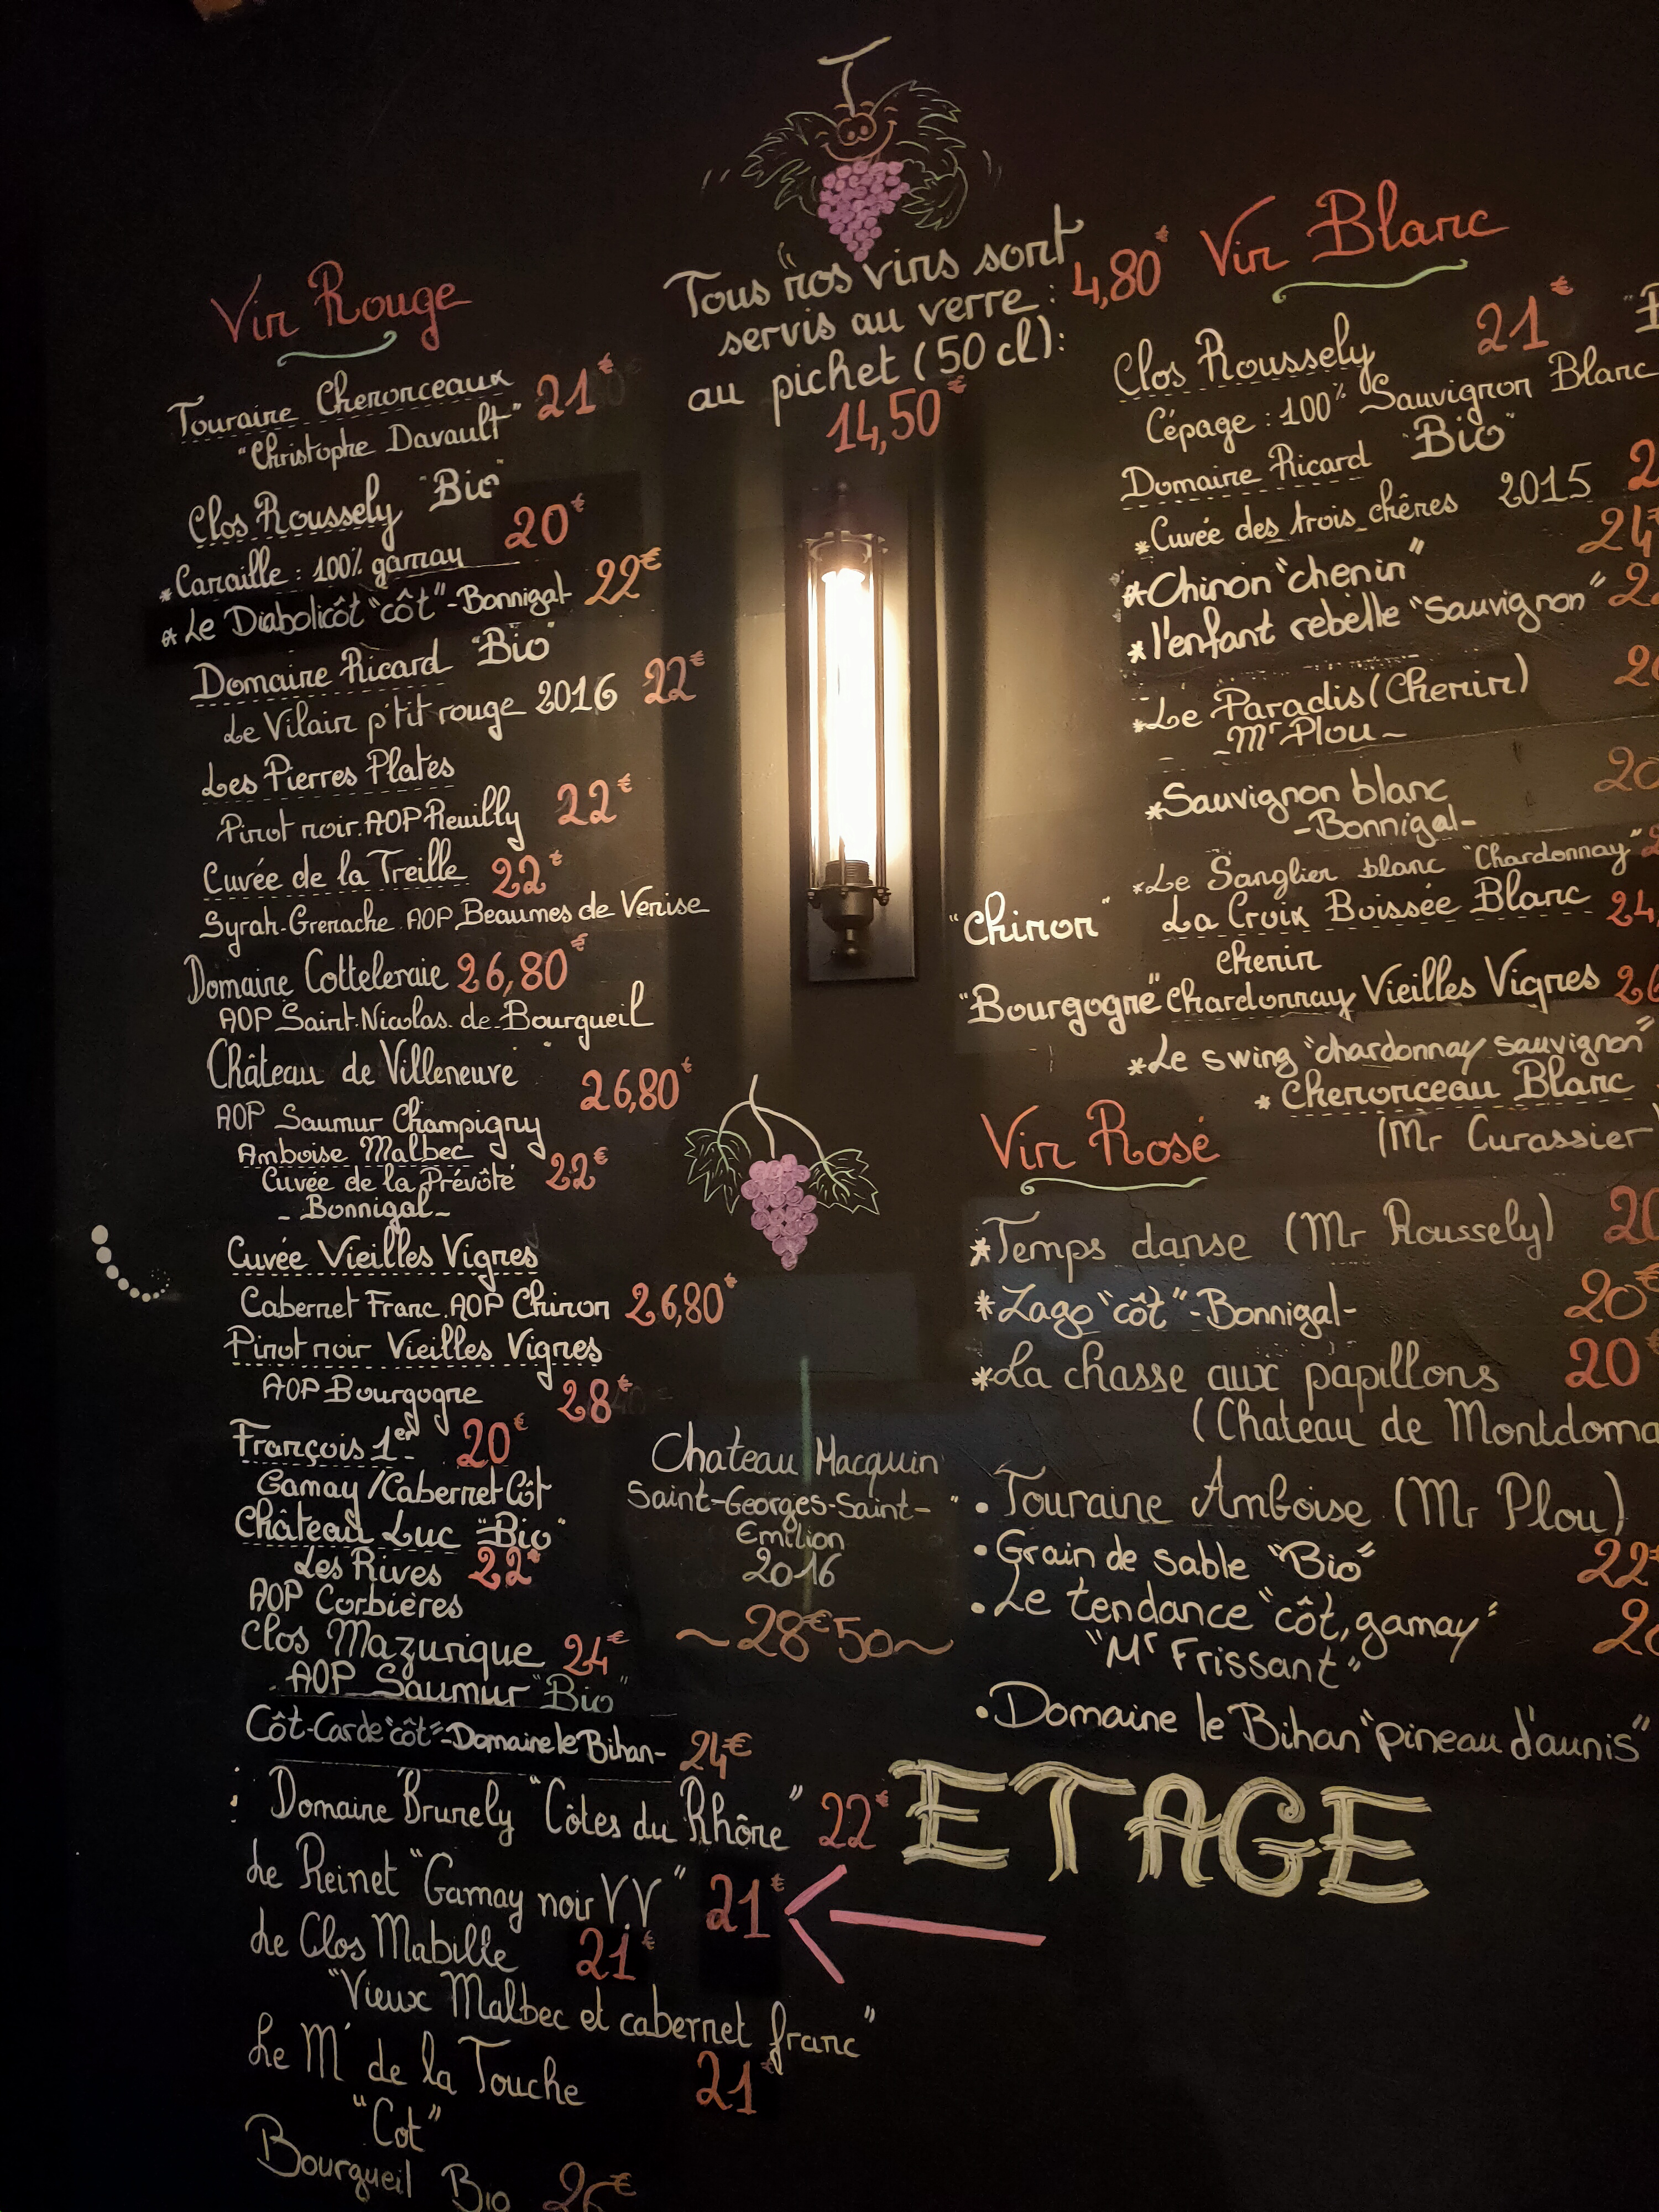 Vin Rouge
Touraine Chenonceaux 21€
"Christophe Davault"
Clos Roussely "Bio"
*Canaille : 100% gamay 20€
*Le Diabolicôt "côt"-Bonnigal- 22€
Domaine Ricard "Bio"
Le Vilain p'tit rouge 2016 22€
Les Pierres Plates
Pinot noir. AOP Reuilly 22€
Cuvée de la Treille 22€
Syrah-Grenache AOP Beaumes de Venise
Domaine Cotteleraie 26,80€
AOP Saint.Nicolas.de.Bourgueil
Château de Villeneuve
26,80€
AOP Saumur Champigny
Amboise Malbec
Cuvée de la Prévôté 22€
- Bonnigal -
Cuvée Vieilles Vignes
Cabernet Franc. AOP Chinon 26,80€
Pinot noir Vieilles Vignes
AOP Bourgogne 28€
François 1er 20€
Gamay /Cabernet Côt
Château Luc "Bio"
Les Rives 22€
AOP Corbières
Clos Mazurique 24€
AOP Saumur "Bio"
Côt-Carde "côt"-Domaine le Bihan- 24€
Domaine Brunely "Côtes du Rhône" 22€
Le Reinet "Gamay noir V.V" 21€
Le Clos Mabille 21€
"Vieux Malbec et cabernet franc"
Le M' de la Touche 21€
"Cot"
Bourgueil Bio 26€
Tous nos vins sont
servis au verre : 4,80€
au pichet (50 cl):
14,50€
Chateau Macquin
Saint-Georges-Saint-
Emilion
2016
~28€50~
Vin Blanc
Clos Roussely 21€
Cépage : 100% Sauvignon Blanc
Domaine Ricard "Bio"
*Cuvée des trois chênes 2015
*Chinon "chenin" 24€
*l'enfant rebelle "Sauvignon"
*Le Paradis (Chenin)
- Mr Plou -
*Sauvignon blanc 20
-Bonnigal-
*Le Sanglier blanc "Chardonnay"
"Chinon" La Croix Boissée Blanc 24,
chenin
"Bourgogne" Chardonnay Vieilles Vignes
*Le swing "chardonnay sauvignon"
* Chenonceau Blanc
(Mr Curassier
Vin Rosé
*Temps danse (Mr Roussely) 20
*Zago "côt"-Bonnigal- 20€
*La chasse aux papillons 20€
(Chateau de Montdoma
•Touraine Amboise (Mr Plou)
•Grain de sable "Bio" 22€
•Le tendance "côt, gamay"
"Mr Frissant"
•Domaine le Bihan "pineau d'aunis"
ETAGE